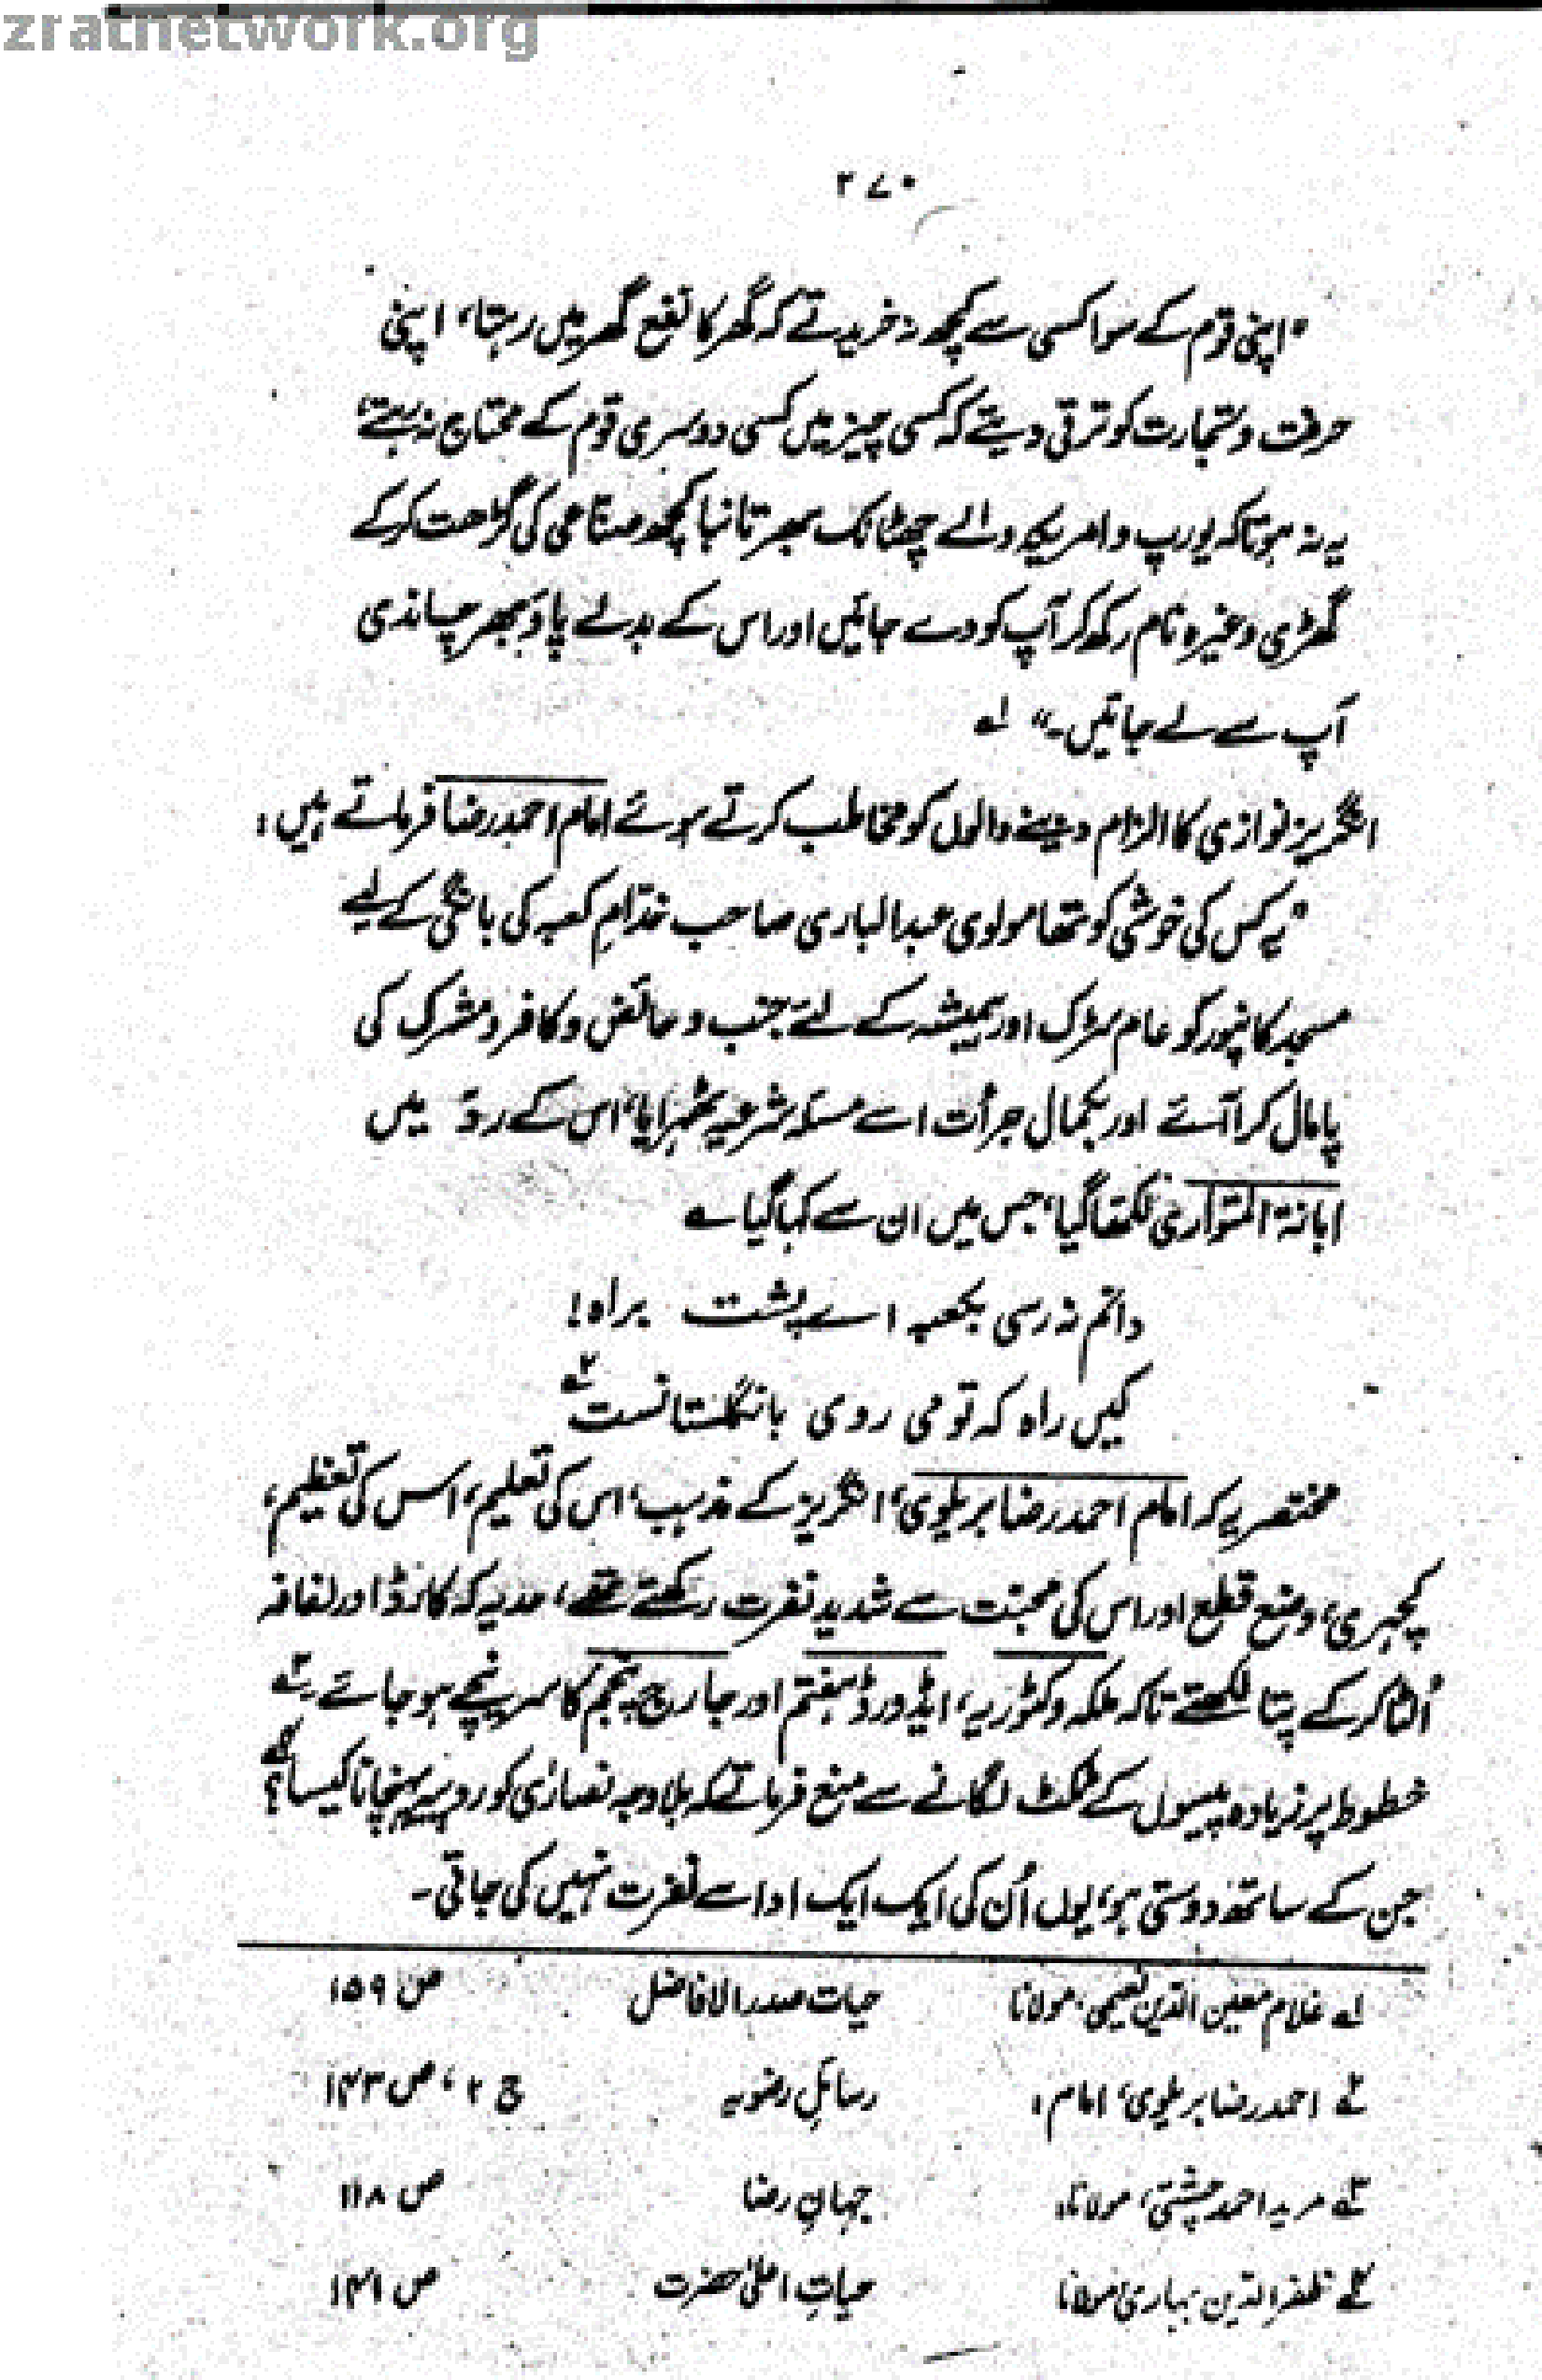 zratnetwork.org
۲۷۰
"اپنی قوم کے سوا کسی سے کچھ نہ خریدتے کہ گھر کا نفع گھر میں رہتا، اپنی
حرفت و تجارت کو ترقی دیتے کہ کسی چیز میں کسی دوسری قوم کے محتاج نہ رہتے
یہ نہ ہوتا کہ یورپ و امریکہ والے چھٹانک بھر تانبا کچھ صناعی کی گڑھت کر کے
گھڑی وغیرہ نام رکھ کر آپ کو دے جائیں اور اس کے بدلے پاؤ بھر چاندی
آپ سے لے جائیں۔" لہ
انگریز نوازی کا الزام دینے والوں کو مخاطب کرتے ہوئے امام احمد رضا فرماتے ہیں:
"یہ کس کی خوشی کو تھا مولوی عبدالباری صاحب خدّامِ کعبہ کی بانگی کے لیے
مسجد کانپور کو عام سڑک اور ہمیشہ کے لئے جنب و حائض و کافر و مشرک کی
پامال کرا آئے اور بکمال جرأت اسے مسئلہ شرعیہ ٹھہرایا، اس کے ردّ میں
ابانۃ المتواری لکھا گیا، جس میں ان سے کہا گیا ؎
دانم نہ رسی بکعبہ اے پشت براہ!
کیں راہ کہ تو می روی بانگلستانست ۲ے
مختصر یہ کہ امام احمد رضا بریلوی، انگریز کے مذہب، اس کی تعلیم، اس کی تعظیم،
کچہری، وضع قطع اور اس کی محبت سے شدید نفرت رکھتے تھے، حد یہ کہ کارڈ اور لفافہ
اُلٹا کر کے پتا لکھتے تاکہ ملکہ وکٹوریہ، ایڈورڈ ہفتم اور جارج پنجم کا سر نیچے ہو جائے۔ ۳ے
خطوط پر زیادہ پیسوں کے ٹکٹ لگانے سے منع فرماتے کہ بلا وجہ نصاریٰ کو روپیہ پہنچانا کیسا؟ ۴ے
جن کے ساتھ دوستی ہو، یوں اُن کی ایک ایک ادا سے نفرت نہیں کی جاتی۔
لہ غلام معین الدین نعیمی، مولانا حیات صدرالافاضل ص ۱۵۹
۲ے احمد رضا بریلوی، امام: رسائلِ رضویہ ج ۲، ص ۱۴۳
۳ے مرید احمد چشتی، مولانا: جہانِ رضا ص ۱۱۸
۴ے ظفرالدین بہاری، مولانا حیاتِ اعلیٰ حضرت ص ۱۴۱